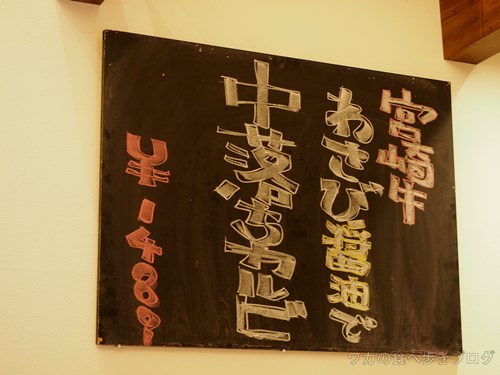 宮崎牛
わさび醤油で
中落ちカルビ
¥1400.
ワカの食べ歩きブログ